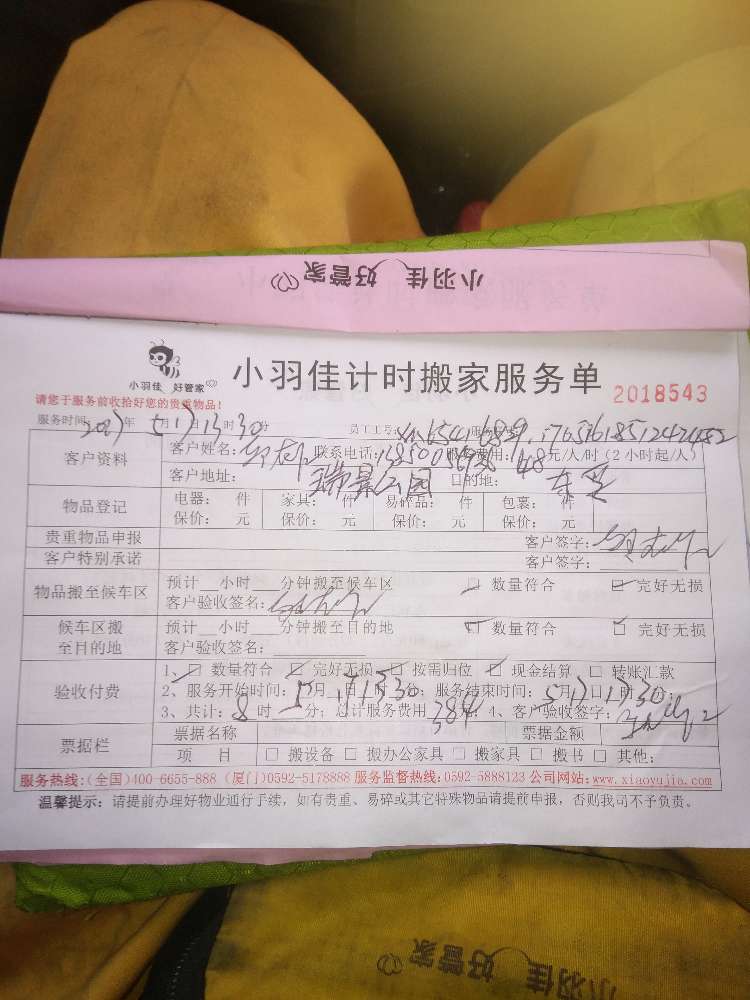 小羽佳 好管家
小羽佳 好管家
小羽佳计时搬家服务单 2018543
请您于服务前收拾好您的贵重物品!
服务时间: 年 5月17日13时30分 员工工号:
客户资料 客户姓名: 联系电话: 服务费用: 48元/人/时(2小时起/人)
客户地址: 瑞景公园 目的地: 东芝
物品登记 电器: 件 家具: 件 易碎品: 件 包裹: 件
保价: 元 保价: 元 保价: 元 保价: 元
贵重物品申报 客户签字:
客户特别承诺 客户签字:
物品搬至候车区 预计 小时 分钟搬至候车区 ☑ 数量符合 ☑ 完好无损
客户验收签名:
候车区搬至目的地 预计 小时 分钟搬至目的地 ☑ 数量符合 ☑ 完好无损
客户验收签名:
验收付费 1、☑ 数量符合 ☑ 完好无损 ☑ 按需归位 ☑ 现金结算 □ 转账汇款
2、服务开始时间: 5月17日13时30; 服务结束时间: 5月17日17时30;
3、共计: 8时 分; 总计服务费用384; 4、客户验收签字:
票据栏 票据名称 票据金额
项 目 □ 搬设备 □ 搬办公家具 □ 搬家具 □ 搬书 □ 其他:
服务热线:(全国)400-6655-888 (厦门)0592-5178888 服务监督热线:0592-5888123 公司网站:www.xiaoyujia.com
温馨提示: 请提前办理好物业通行手续, 如有贵重、易碎或其它特殊物品请提前申报, 否则我司不予负责。
小羽佳 好管家